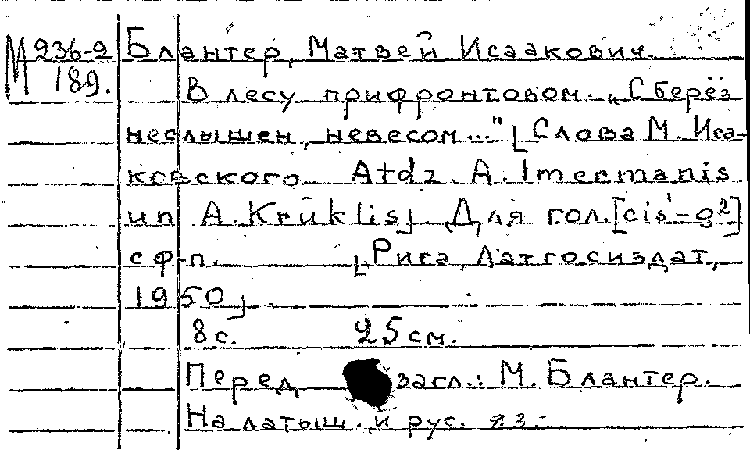 М 236-2 Блантер, Матвей Исаакович.
189.
В лесу прифронтовом. „С берёз
неслышен, невесом..." [Слова М. Иса-
ковского. Atdz. A. Imermanis
un A. Krūklis] Для гол. [cis'-g²]
с ф-п. [Рига, Латгосиздат,
1950]
8 с. 25 см.
Перед загл.: М. Блантер.
На латыш. и рус. яз.-